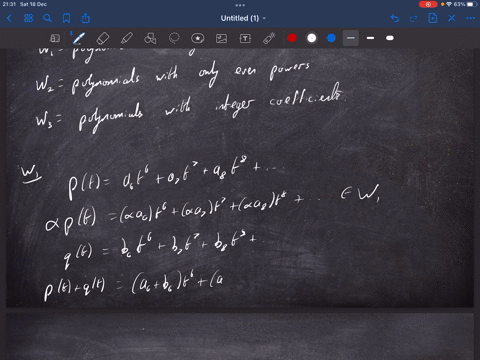 21:31 Sat 18 Dec
63%
Untitled (1)
W₁ = polynomials
W₂ = polynomials with only even powers
W₃ = polynomials with integer coefficients
W₁
p(t) = a₆t⁶ + a₇t⁷ + a₈t⁸ + ...
αp(t) = (αa₆)t⁶ + (αa₇)t⁷ + (αa₈)t⁸ + ... ∈ W₁
q(t) = b₆t⁶ + b₇t⁷ + b₈t⁸ +
p(t) + q(t) = (a₆ + b₆)t⁶ + (a